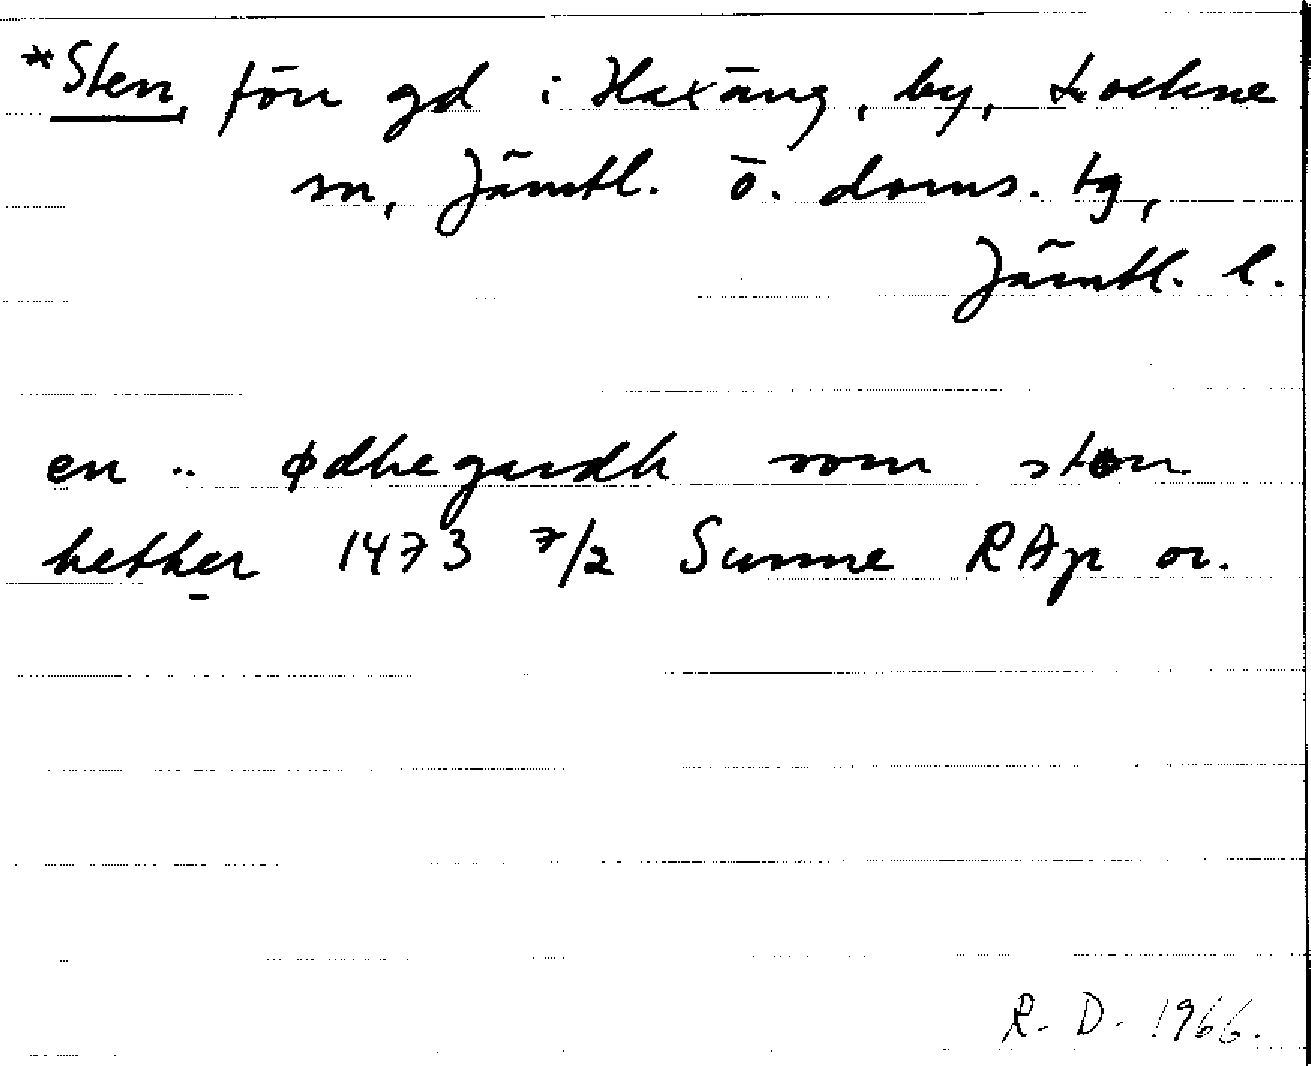 *Sten, förr gd i Haxäng, by, Lockne
sn, Jämtl. ö. doms. tg,
Jämtl. l.
en .. ødhegardh som sten
hether 1473 7/2 Sunne RAp or.
R. D. 1966.